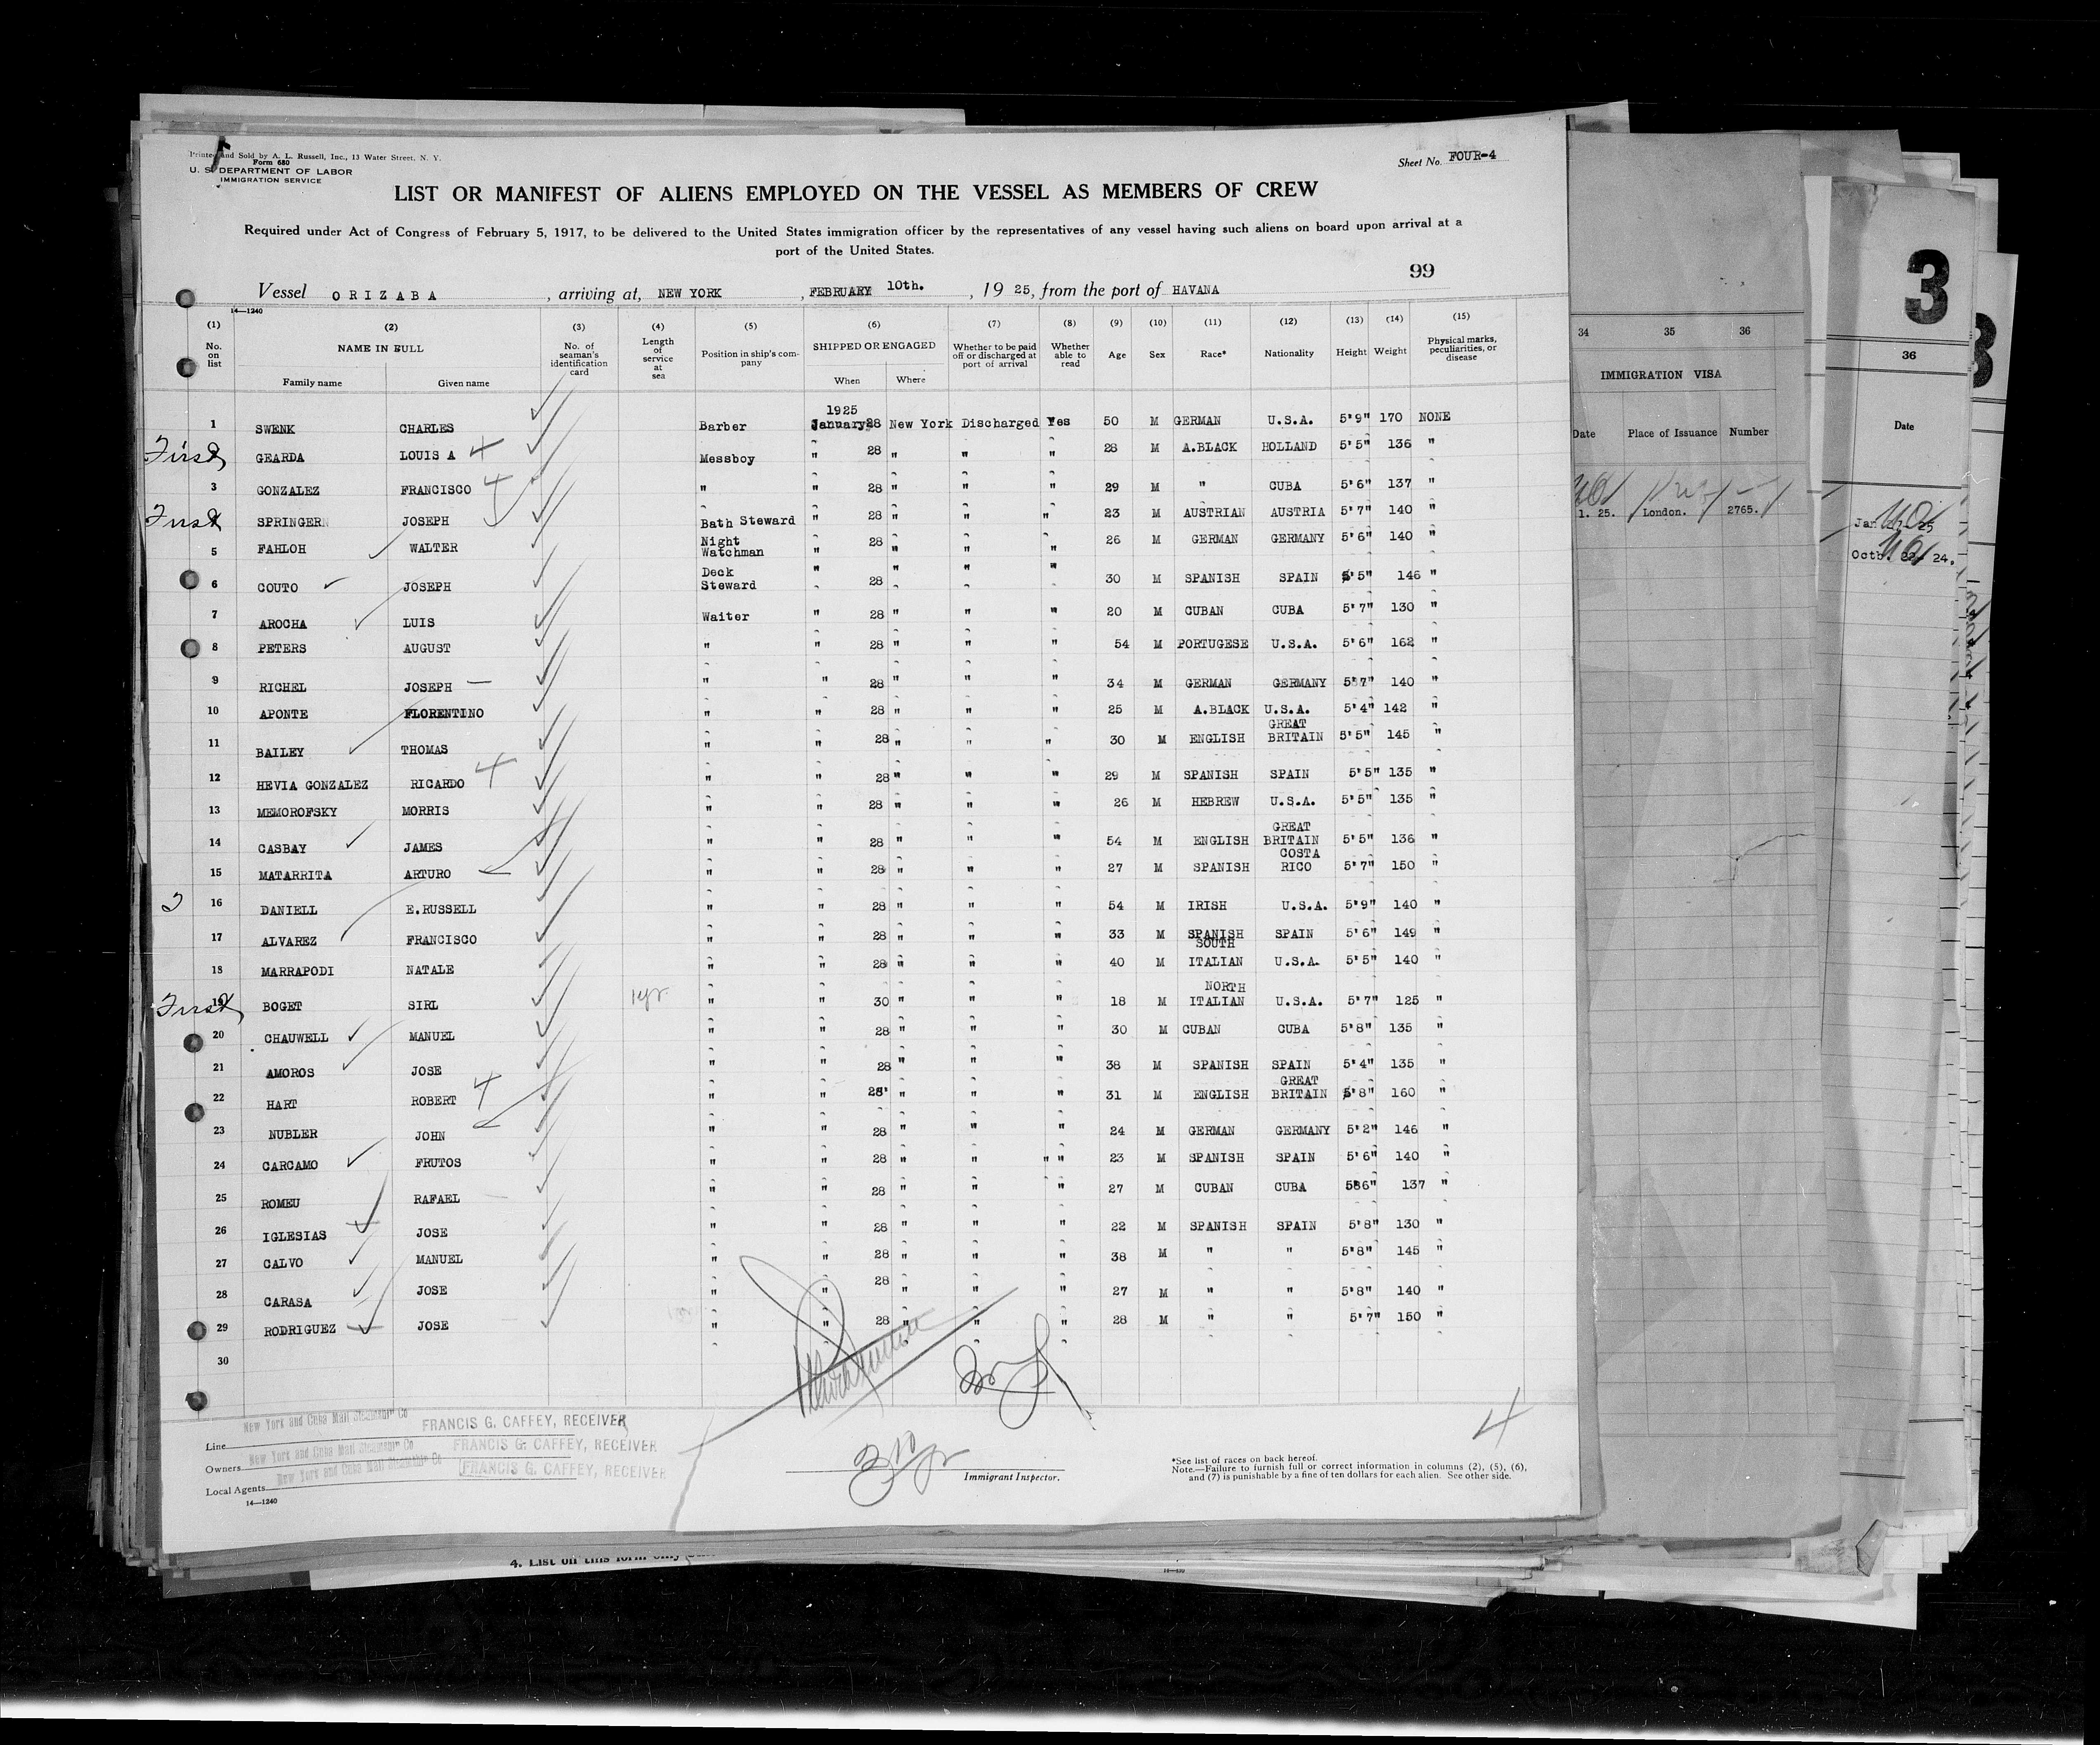 Printed and Sold by A. L. Russell, Inc., 13 Water Street, N. Y.
Form 680
U. S. DEPARTMENT OF LABOR
IMMIGRATION SERVICE
Sheet No. FOUR-4
LIST OR MANIFEST OF ALIENS EMPLOYED ON THE VESSEL AS MEMBERS OF CREW
Required under Act of Congress of February 5, 1917, to be delivered to the United States immigration officer by the representatives of any vessel having such aliens on board upon arrival at a
port of the United States.
99
Vessel ORIZABA, arriving at, NEW YORK, FEBRUARY 10th., 19 25, from the port of HAVANA
14—1240
(1) No. on list
(2) NAME IN FULL Family name Given name
(3) No. of seaman's identification card
(4) Length of service at sea
(5) Position in ship's company
(6) SHIPPED OR ENGAGED When Where
(7) Whether to be paid off or discharged at port of arrival
(8) Whether able to read
(9) Age
(10) Sex
(11) Race*
(12) Nationality
(13) Height
(14) Weight
(15) Physical marks, peculiarities, or disease
1925
1 SWENK CHARLES Barber January 28 New York Discharged Yes 50 M GERMAN U.S.A. 5'9" 170 NONE
First GEARDA LOUIS A 4 Messboy " 28 " " " 28 M A.BLACK HOLLAND 5'5" 136 "
3 GONZALEZ FRANCISCO 4 " " 28 " " " 29 M " CUBA 5'6" 137 "
First SPRINGER JOSEPH Bath Steward " 28 " " " 23 M AUSTRIAN AUSTRIA 5'7" 140 "
5 FAHLOH WALTER Night Watchman " 28 " " " 26 M GERMAN GERMANY 5'6" 140 "
6 COUTO JOSEPH Deck Steward " 28 " " " 30 M SPANISH SPAIN 5'5" 146 "
7 AROCHA LUIS Waiter " 28 " " " 20 M CUBAN CUBA 5'7" 130 "
8 PETERS AUGUST " " 28 " " " 54 M PORTUGESE U.S.A. 5'6" 162 "
9 RICHEL JOSEPH " " 28 " " " 34 M GERMAN GERMANY 5'7" 140 "
10 APONTE FLORENTINO " " 28 " " " 25 M A.BLACK U.S.A. 5'4" 142 "
11 BAILEY THOMAS " " 28 " " " 30 M ENGLISH GREAT BRITAIN 5'5" 145 "
12 HEVIA GONZALEZ RICARDO 4 " " 28 " " " 29 M SPANISH SPAIN 5'5" 135 "
13 MEMOROFSKY MORRIS " " 28 " " " 26 M HEBREW U.S.A. 5'5" 135 "
14 CASBAY JAMES " " 28 " " " 54 M ENGLISH GREAT BRITAIN 5'5" 136 "
15 MATARRITA ARTURO " " 28 " " " 27 M SPANISH COSTA RICO 5'7" 150 "
2 16 DANIELL E.RUSSELL " " 28 " " " 54 M IRISH U.S.A. 5'9" 140 "
17 ALVAREZ FRANCISCO " " 28 " " " 33 M SPANISH SPAIN 5'6" 149 "
18 MARRAPODI NATALE " " 28 " " " 40 M SOUTH ITALIAN U.S.A. 5'5" 140 "
First 19 BOGET SIRL 1yr. " " 30 " " " 18 M NORTH ITALIAN U.S.A. 5'7" 125 "
20 CHAUWELL MANUEL " " 28 " " " 30 M CUBAN CUBA 5'8" 135 "
21 AMOROS JOSE " " 28 " " " 38 M SPANISH SPAIN 5'4" 135 "
22 HART ROBERT 4 " " 28 " " " 31 M ENGLISH GREAT BRITAIN 5'8" 160 "
23 NUBLER JOHN " " 28 " " " 24 M GERMAN GERMANY 5'2" 146 "
24 CARCAMO FRUTOS " " 28 " " " " 23 M SPANISH SPAIN 5'6" 140 "
25 ROMEU RAFAEL " " 28 " " " 27 M CUBAN CUBA 586" 137 "
26 IGLESIAS JOSE " " 28 " " " 22 M SPANISH SPAIN 5'8" 130 "
27 CALVO MANUEL " " 28 " " " 38 M " " 5'8" 145 "
28 CARASA JOSE " " 28 " " " 27 M " " 5'8" 140 "
29 RODRIGUEZ JOSE " " 28 " " " 28 M " " 5'7" 150 "
30
4
Line New York and Cuba Mail Steamship Co FRANCIS G. CAFFEY, RECEIVER
Owners New York and Cuba Mail Steamship Co FRANCIS G. CAFFEY, RECEIVER
Local Agents New York and Cuba Mail Steamship Co FRANCIS G. CAFFEY, RECEIVER
14—1240
Immigrant Inspector.
*See list of races on back hereof.
Note.—Failure to furnish full or correct information in columns (2), (5), (6),
and (7) is punishable by a fine of ten dollars for each alien. See other side.
34 35 36
IMMIGRATION VISA
Date Place of Issuance Number
1. 25. London. 2765.
3
36
Date
Jan 25
Octb. 22 24.
4. List on this form only